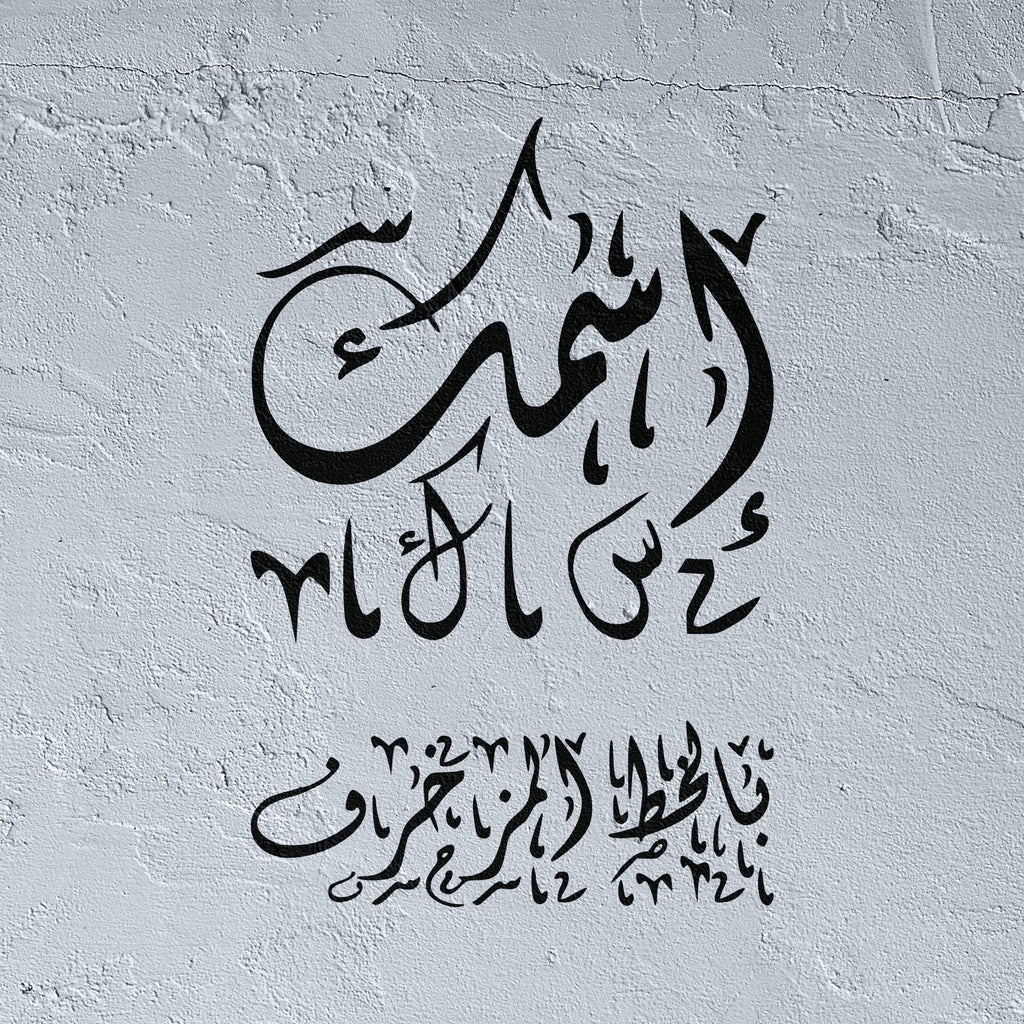 إسمك
بالخط المزخرف